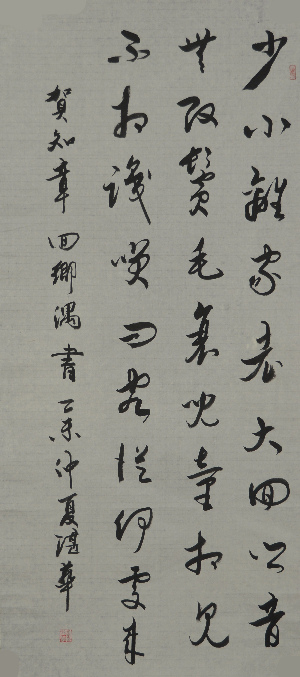 少小離家老大回鄉音
無改鬢毛衰兒童相見
不相識笑問客從何處來
賀知章回鄉偶書乙未仲夏華